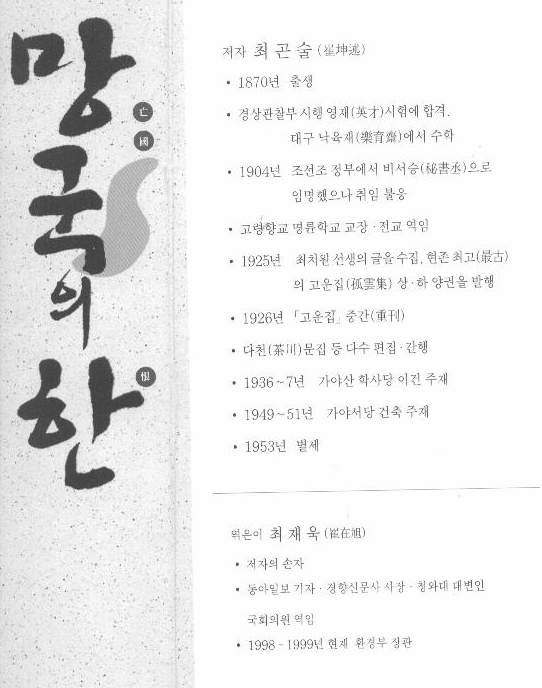 망국의 한
亡國
恨
저자 최곤술 (崔坤述)
• 1870년 출생
• 경상관찰부 시행 영재(英才)시험에 합격,
대구 낙육재(樂育齋)에서 수학
• 1904년 조선조 정부에서 비서승(秘書丞)으로
임명했으나 취임 불응
• 고령향교 명륜학교 교장 · 전교 역임
• 1925년 최치원 선생의 글을 수집, 현존 최고(最古)
의 고운집(孤雲集) 상 · 하 양권을 발행
• 1926년 「고운집」 중간(重刊)
• 다천(茶川)문집 등 다수 편집 · 간행
• 1936~7년 가야산 학사당 이건 주재
• 1949~51년 가야서당 건축 주재
• 1953년 별세
엮은이 최재욱 (崔在旭)
• 저자의 손자
• 동아일보 기자 · 경향신문사 사장 · 청와대 대변인
국회의원 역임
• 1998 - 1999년 현재 환경부 장관